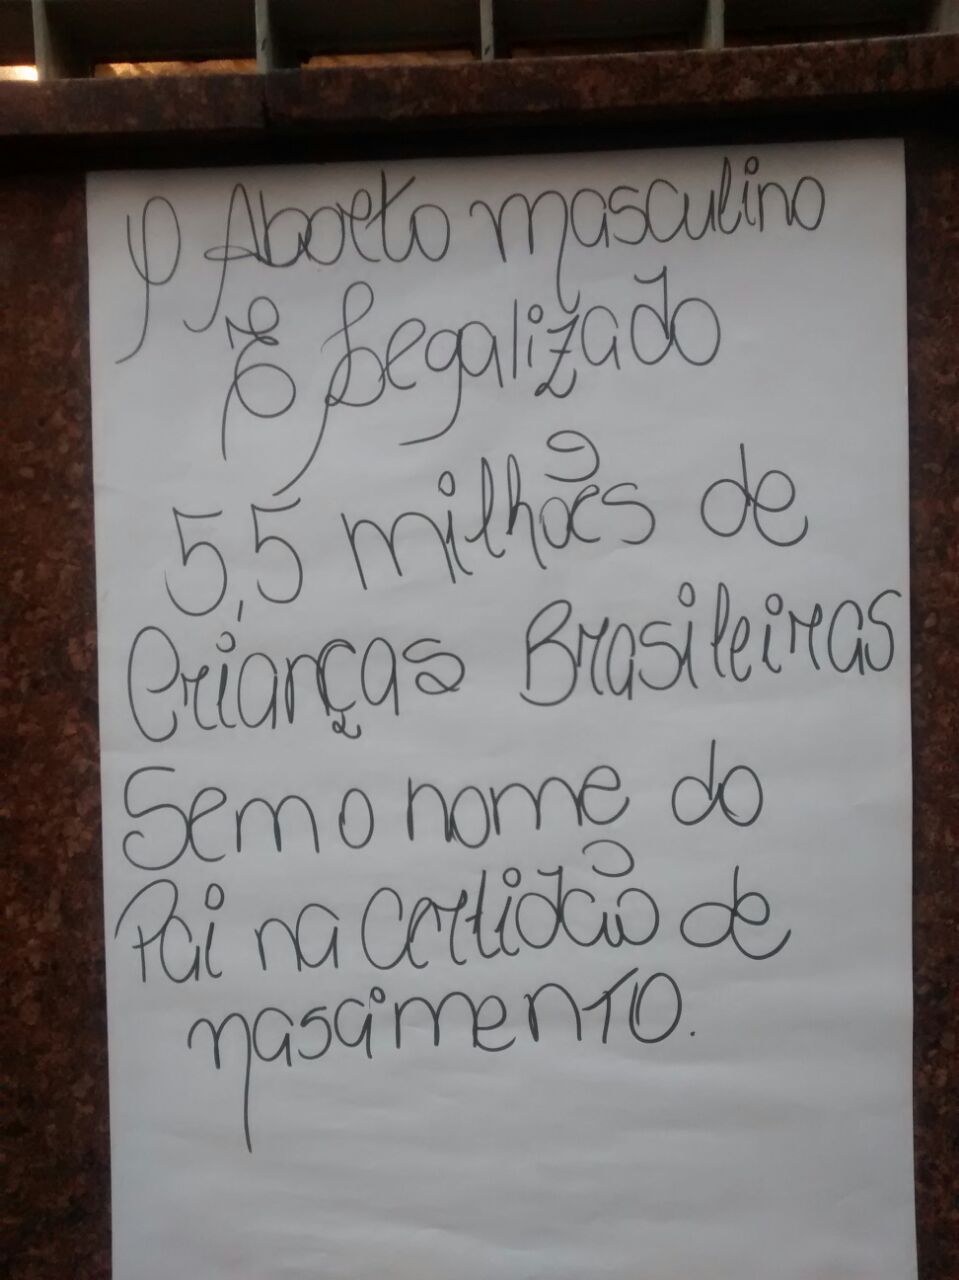 O Aborto masculino
É Legalizado
5,5 milhões de
Crianças Brasileiras
Sem o nome do
Pai na Certidão de
nascimento.